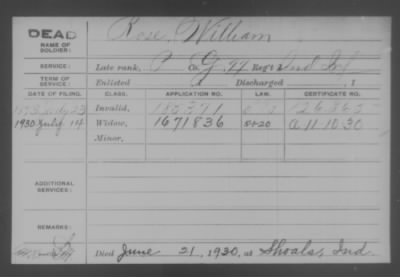 DEAD
NAME OF SOLDIER: Rose, William
SERVICE: Late rank, Co. G, Reg't Ind Inf
TERM OF SERVICE: Enlisted Discharged , 1
DATE OF FILING. CLASS. APPLICATION NO. LAW. CERTIFICATE NO.
Invalid,
1930 July 14 Widow, 1671836 5-1-20 A 11-10-30
Minor,
ADDITIONAL SERVICES:
REMARKS:
Died June 21, 1930, at Shoals, Ind.